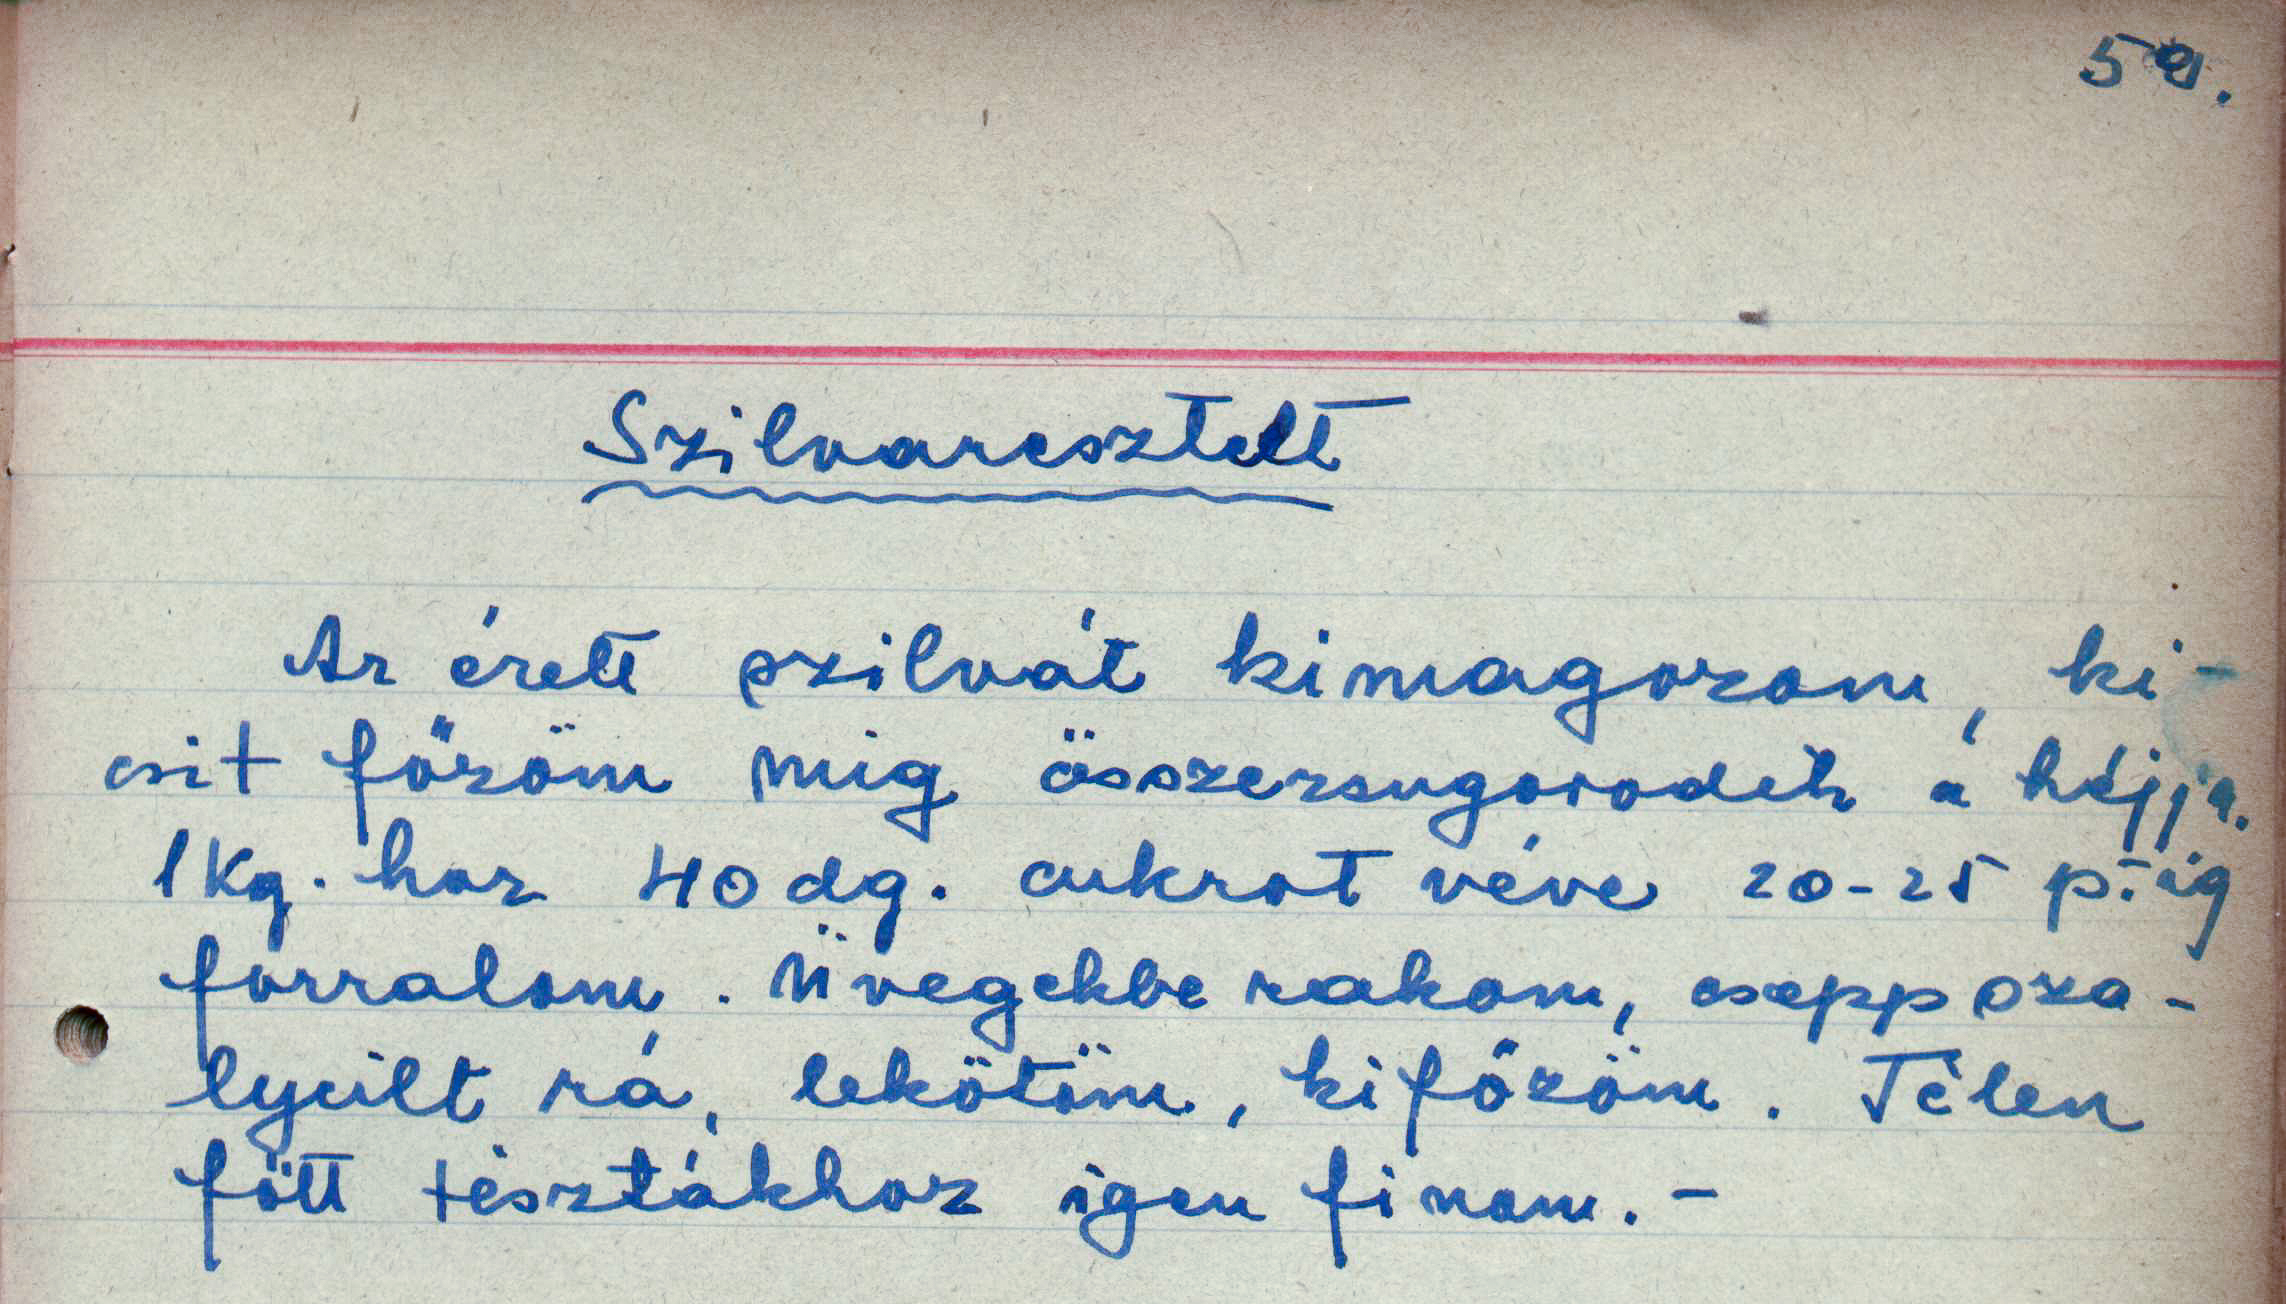 Szilvaresztelt
Az érett szilvát kimagozom, ki-
csit főzöm mig összezsugorodik a héjja.
1 Kg. hoz 40 dg. cukrot véve 20-25 p.-ig
forralom. Üvegekbe rakom, csepp sza-
lycilt rá, lekötöm, kifőzöm. Télen
főtt tésztákhoz igen finom. -